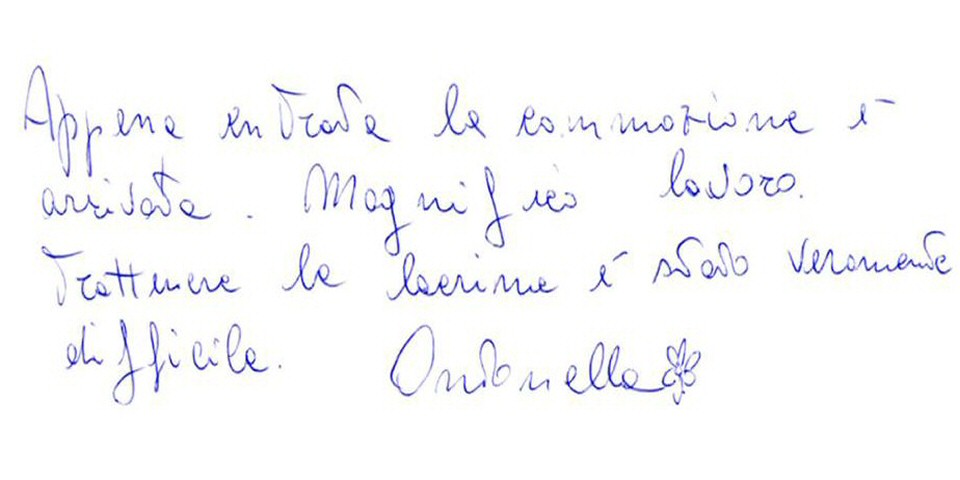 Appena entrata la commozione è
arrivata. Magnifico lavoro.
Trattenere le lacrime è stato veramente
difficile. Antonella